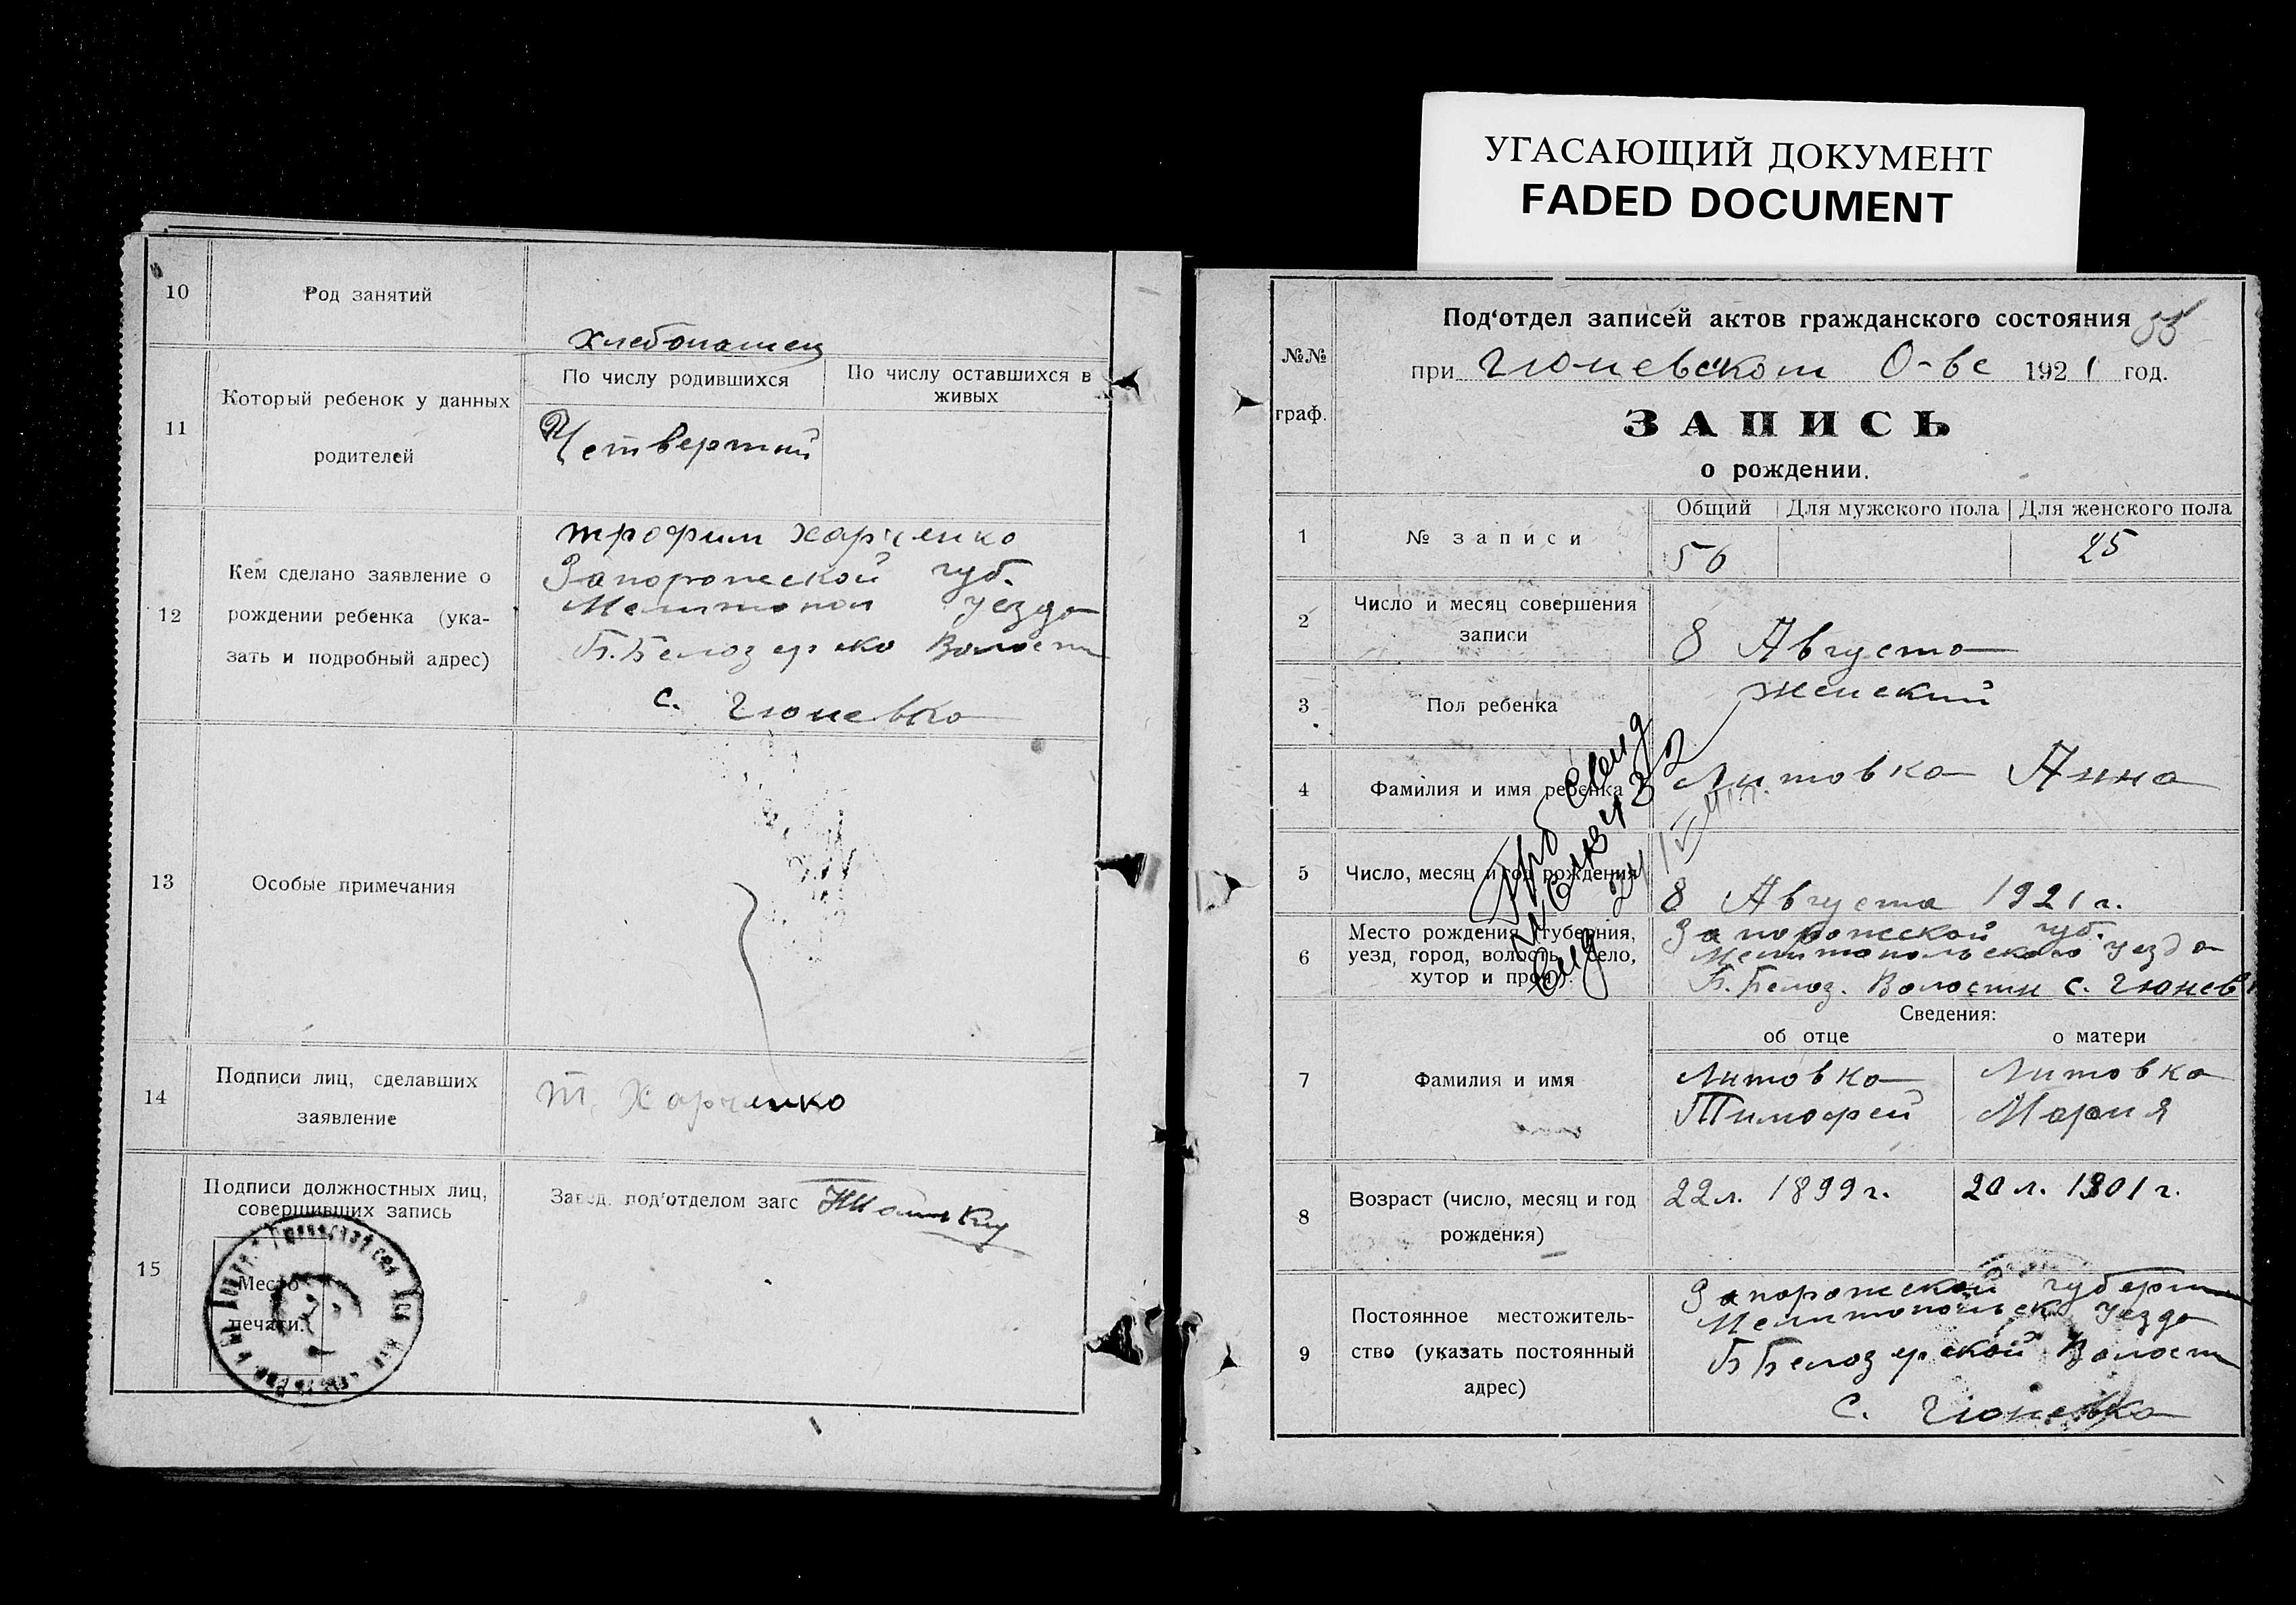 УГАСАЮЩИЙ ДОКУМЕНТ
FADED DOCUMENT
10
Род занятий
хлебопашец
11
Который ребенок у данных
родителей
По числу родившихся
По числу оставшихся в
живых
Четвертий
12
Кем сделано заявление о
рождении ребенка (ука-
зать и подробный адрес)
Трофим Харченко
Запорожской губ.
Мелитопол уезда
Б. Белозерско Волости
с. Гюневка
13
Особые примечания
14
Подписи лиц, сделавших
заявление
Т. Харченко
15
Подписи должностных лиц,
совершивших запись
Место
печати.
Завед. под'отделом загс
№№
граф.
Под'отдел записей актов гражданского состояния
55
при Гюневском О-ве 1921 год.
ЗАПИСЬ
о рождении.
1
№ записи
Общий
Для мужского пола
Для женского пола
56
25
2
Число и месяц совершения
записи
8 Августа
3
Пол ребенка
женский
4
Фамилия и имя ребенка
Литовка Анна
5
Число, месяц и год рождения
8 Августа 1921 г.
6
Место рождения (губерния,
уезд, город, волость, село,
хутор и проч.).
Запорожской губ.
Мелитопольского уезда
Б. Белоз. Волости с. Гюнев
7
Фамилия и имя
Сведения:
об отце
о матери
Литовка
Тимофей
Литовка
Мария
8
Возраст (число, месяц и год
рождения)
22 л. 1899 г.
20 л. 1901 г.
9
Постоянное местожитель-
ство (указать постоянный
адрес)
Запорожской губерни
Мелитопольск уезда
Б Белозерской Волости
с. Гюневка